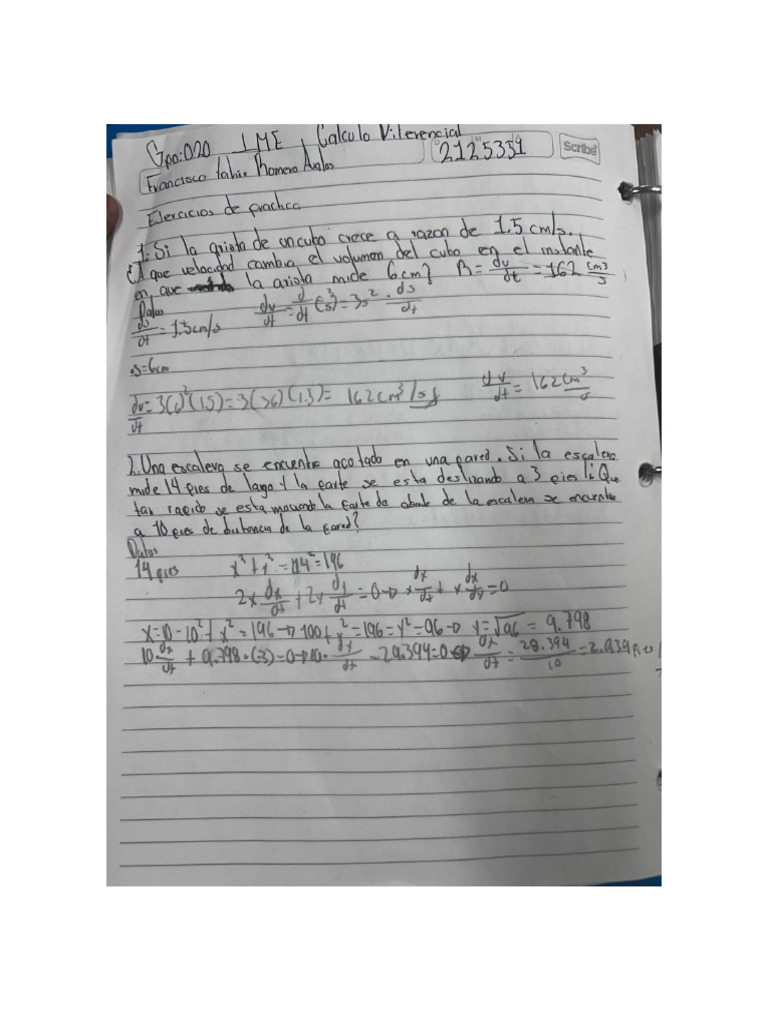 Gpo:020 IME Calculo Diferencial
2125331 Scribe
Francisco Romero Avalos
Ejercicios de practica
1. Si la arista de un cubo crece a razon de 1.5 cm/s.
¿A que velocidad cambia el volumen del cubo en el instante
en que la arista mide 6cm? R= dv/dt = 162 cm³/s
Datos
ds/dt = 1.5cm/s dv/dt = d/dt (s³) = 3s² · ds/dt
s=6cm
dv/dt = 3(6)²(1.5) = 3(36)(1.5) = 162cm³/s dv/dt = 162cm³/s
2. Una escalera se encuentra acotado en una pared. Si la escalera
mide 14 pies de largo y la parte se esta deslizando a 3 pies ¿Que
tan rapido se esta moviendo la parte de abajo de la escalera se encuentra
a 10 pies de distancia de la pared?
Datos
14 pies x²+y² = 14² = 196
2x dx/dt + 2y dy/dt = 0 → x dx/dt + y dx/dt = 0
x=10 - 10² + y² = 196 → 100 + y² = 196 = y² = 96 → y = √96 = 9.798
10 dx/dt + 9.798·(-3) = 0 → 10· dx/dt - 29.394 = 0 dx/dt = 29.394/10 = 2.939 pies/